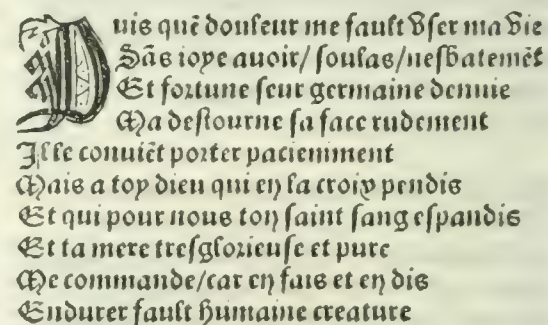 Puis quẽ douleur me fault vser ma vie
Sãs ioye auoir/ soulas/nesbatemẽt
Et fortune seur germaine denuie
Ma destourne sa face rudement
Il se conuiẽt porter paciemment
Mais a toy dieu qui en la croix pendis
Et qui pour nous ton saint sang espandis
Et ta mere tresglorieuse et pure
Me commande/car en fais et en dis
Endurer fault humaine creature